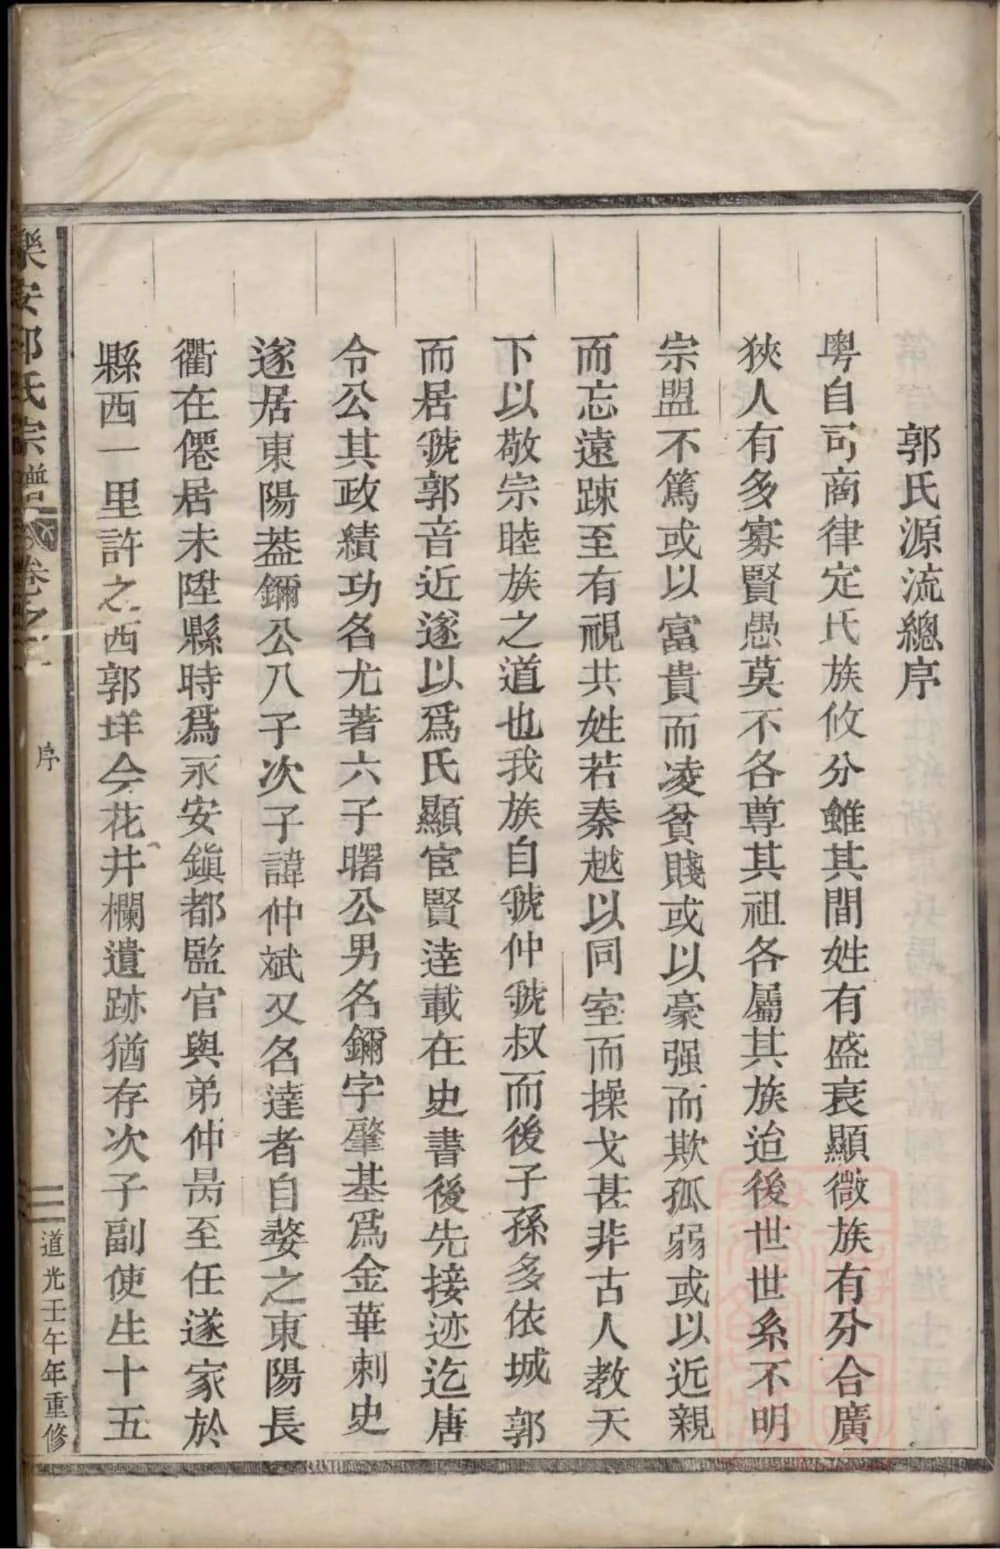 郭氏源流總序
粵自司商律定氏族攸分雖其間姓有盛衰顯微族有分合廣
狹人有多寡賢愚莫不各尊其祖各屬其族迨後世世系不明
宗盟不篤或以富貴而凌貧賤或以豪强而欺孤弱或以近親
而忘遠踈至有視共姓若秦越以同室而操戈甚非古人教天
下以敬宗睦族之道也我族自虢仲虢叔而後子孫多依城郭
而居虢郭音近遂以爲氏顯宦賢逹載在史書後先接迹迄唐
令公其政績功名尤著六子曙公男名鐗字肇基爲金華刺史
遂居東陽葢鐗公八子次子諱仲斌又名達者自婺之東陽長
衢在僊居未陞縣時爲永安鎮都監官與弟仲昺至任遂家於
縣西一里許之西郭垟今花井欄遺跡猶存次子副使生十五
樂安郭氏宗譜 卷之
序
道光壬午年重修